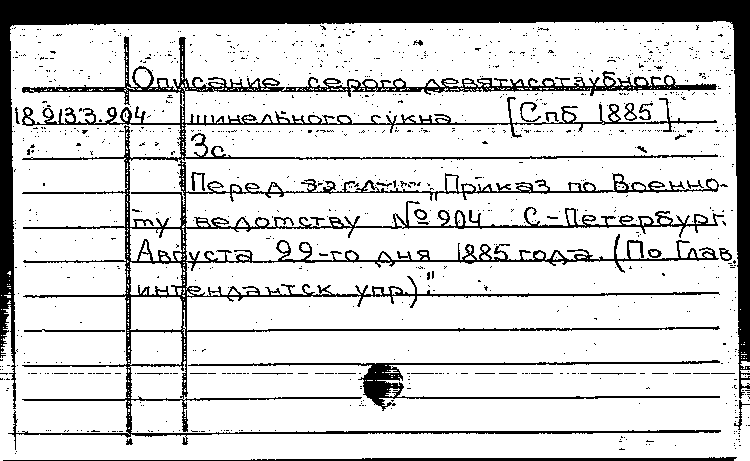 Описание серого девятисотзубного
18.213.3.904 шинельного сукна. [Спб, 1885].
3с.
Перед заглав: „Приказ по Военно-
му ведомству № 204. С-Петербург.
Августа 22-го дня 1885 года. (По Глав.
интендантск упр.)".